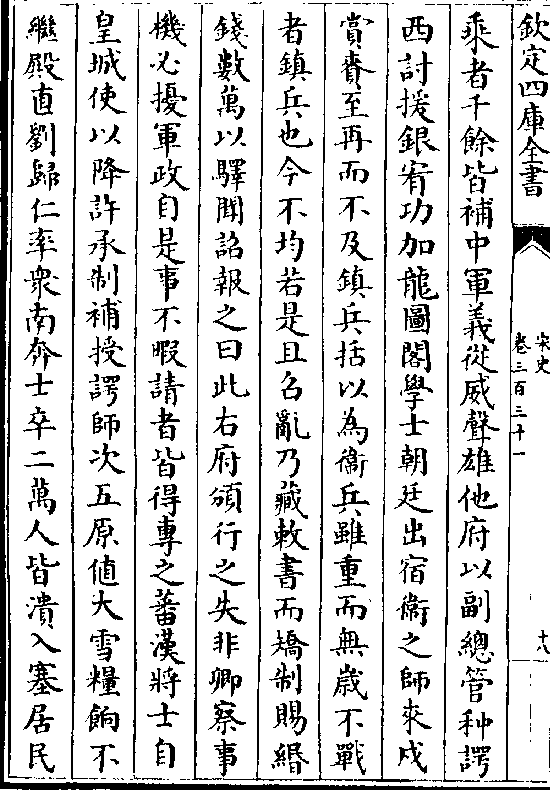 欽定四庫全書
宋史
卷三百三十一
十八
乘者千餘皆補中軍義從威聲雄他府以副總管种諤
西討援銀宥功加龍圖閣學士朝廷出宿衞之師來戍
賞賚至再而不及鎮兵括以為衞兵雖重而無歲不戰
者鎮兵也今不均若是且召亂乃藏敕書而矯制賜緡
錢數萬以驛聞詔報之曰此右府頒行之失非卿察事
機必擾軍政自是事不暇請者皆得專之蕃漢將士自
皇城使以降許承制補授諤師次五原值大雪糧餉不
繼殿直劉歸仁率衆南奔士卒二萬人皆潰入塞居民